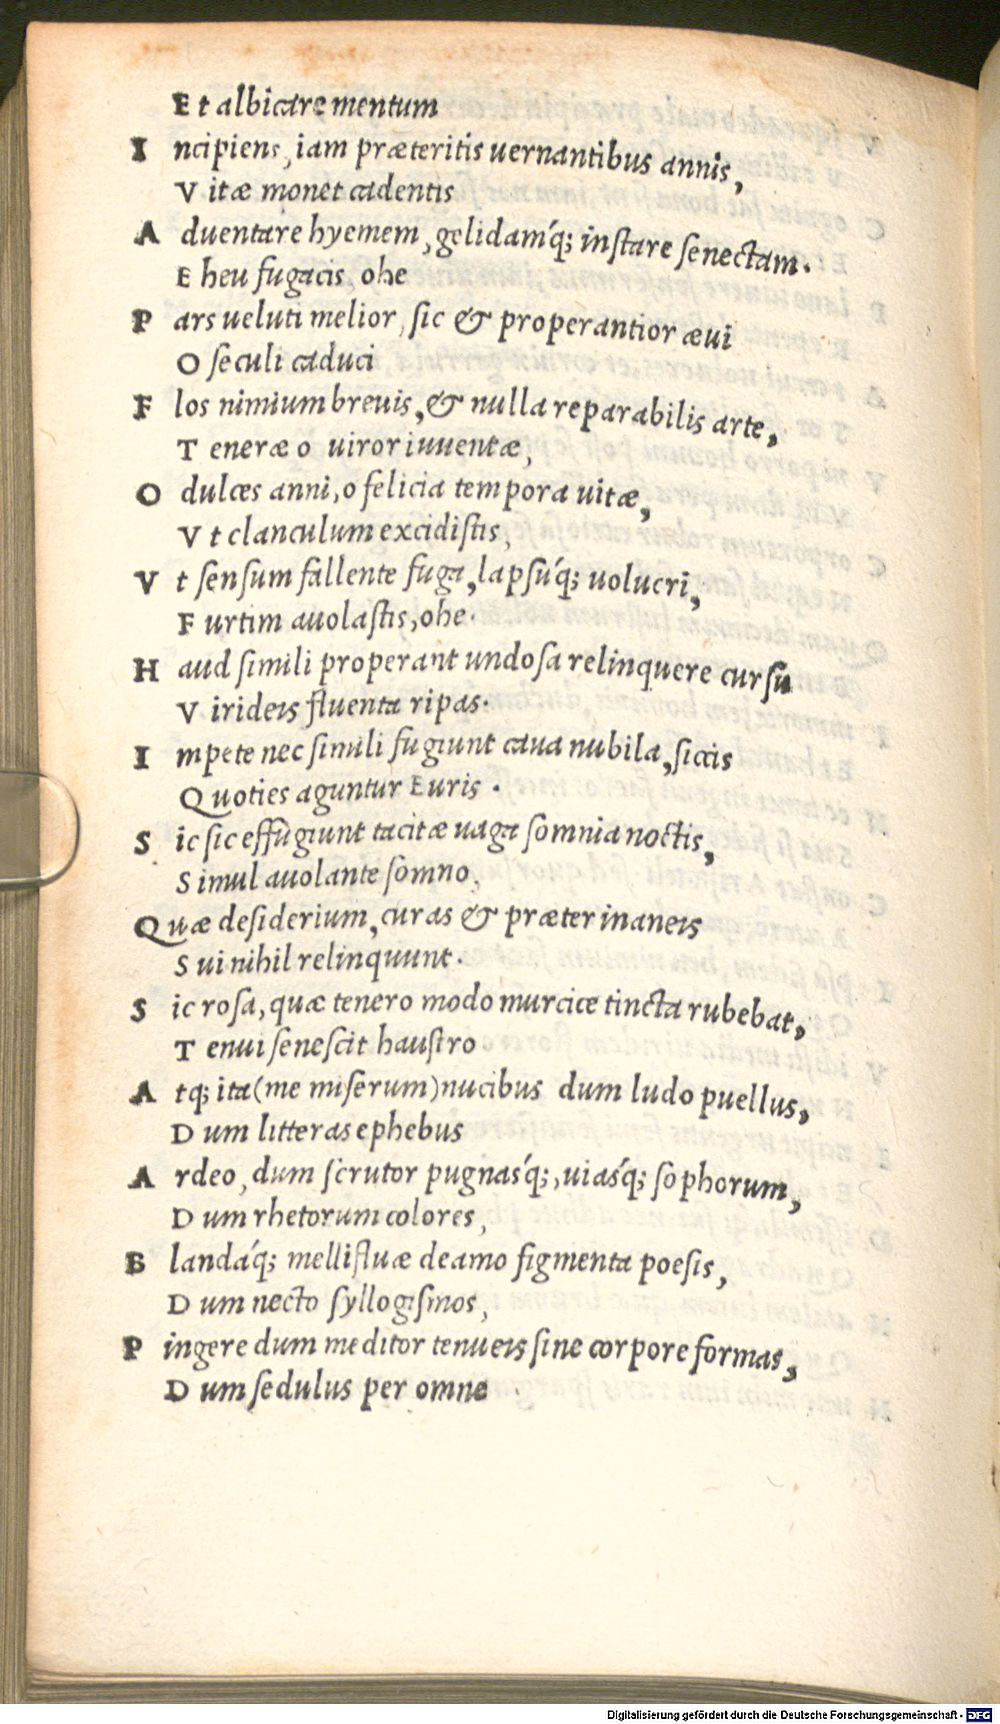 Et albicare mentum
Incipiens, iam præteritis uernantibus annis,
Vitæ monet cadentis
Aduentare hyemem, gelidamq́; instare senectam.
Eheu fugacis, ohe
Pars ueluti melior, sic & properantior æui
O seculi caduci
Flos nimium breuis, & nulla reparabilis arte,
Teneræ o uiror iuuentæ,
O dulces anni, o felicia tempora uitæ,
Vt clanculum excidistis,
Vt sensum fallente fuga, lapsuq́; uolucri,
Furtim auolastis, ohe.
Haud simili properant undosa relinquere cursu
Virideis fluenta ripas.
Impete nec simili fugiunt caua nubila, siccis
Quoties aguntur Euris.
Sic sic effugiunt tacitæ uaga somnia noctis,
Simul auolante somno,
Quæ desiderium, curas & præter inaneis
Sui nihil relinquunt.
Sic rosa, quæ tenero modo murcice tincta rubebat,
Tenui senescit haustro
Atq; ita (me miserum) nucibus dum ludo puellus,
Dum litteras ephebus
Ardeo, dum scrutor pugnasq́;, uiasq́; sophorum,
Dum rhetorum colores,
Blandaq́; mellifluæ deamo figmenta poesis,
Dum necto syllogismos,
Pingere dum meditor tenueis sine corpore formas,
Dum sedulus per omne
Digitalisierung gefördert durch die Deutsche Forschungsgemeinschaft - DFG